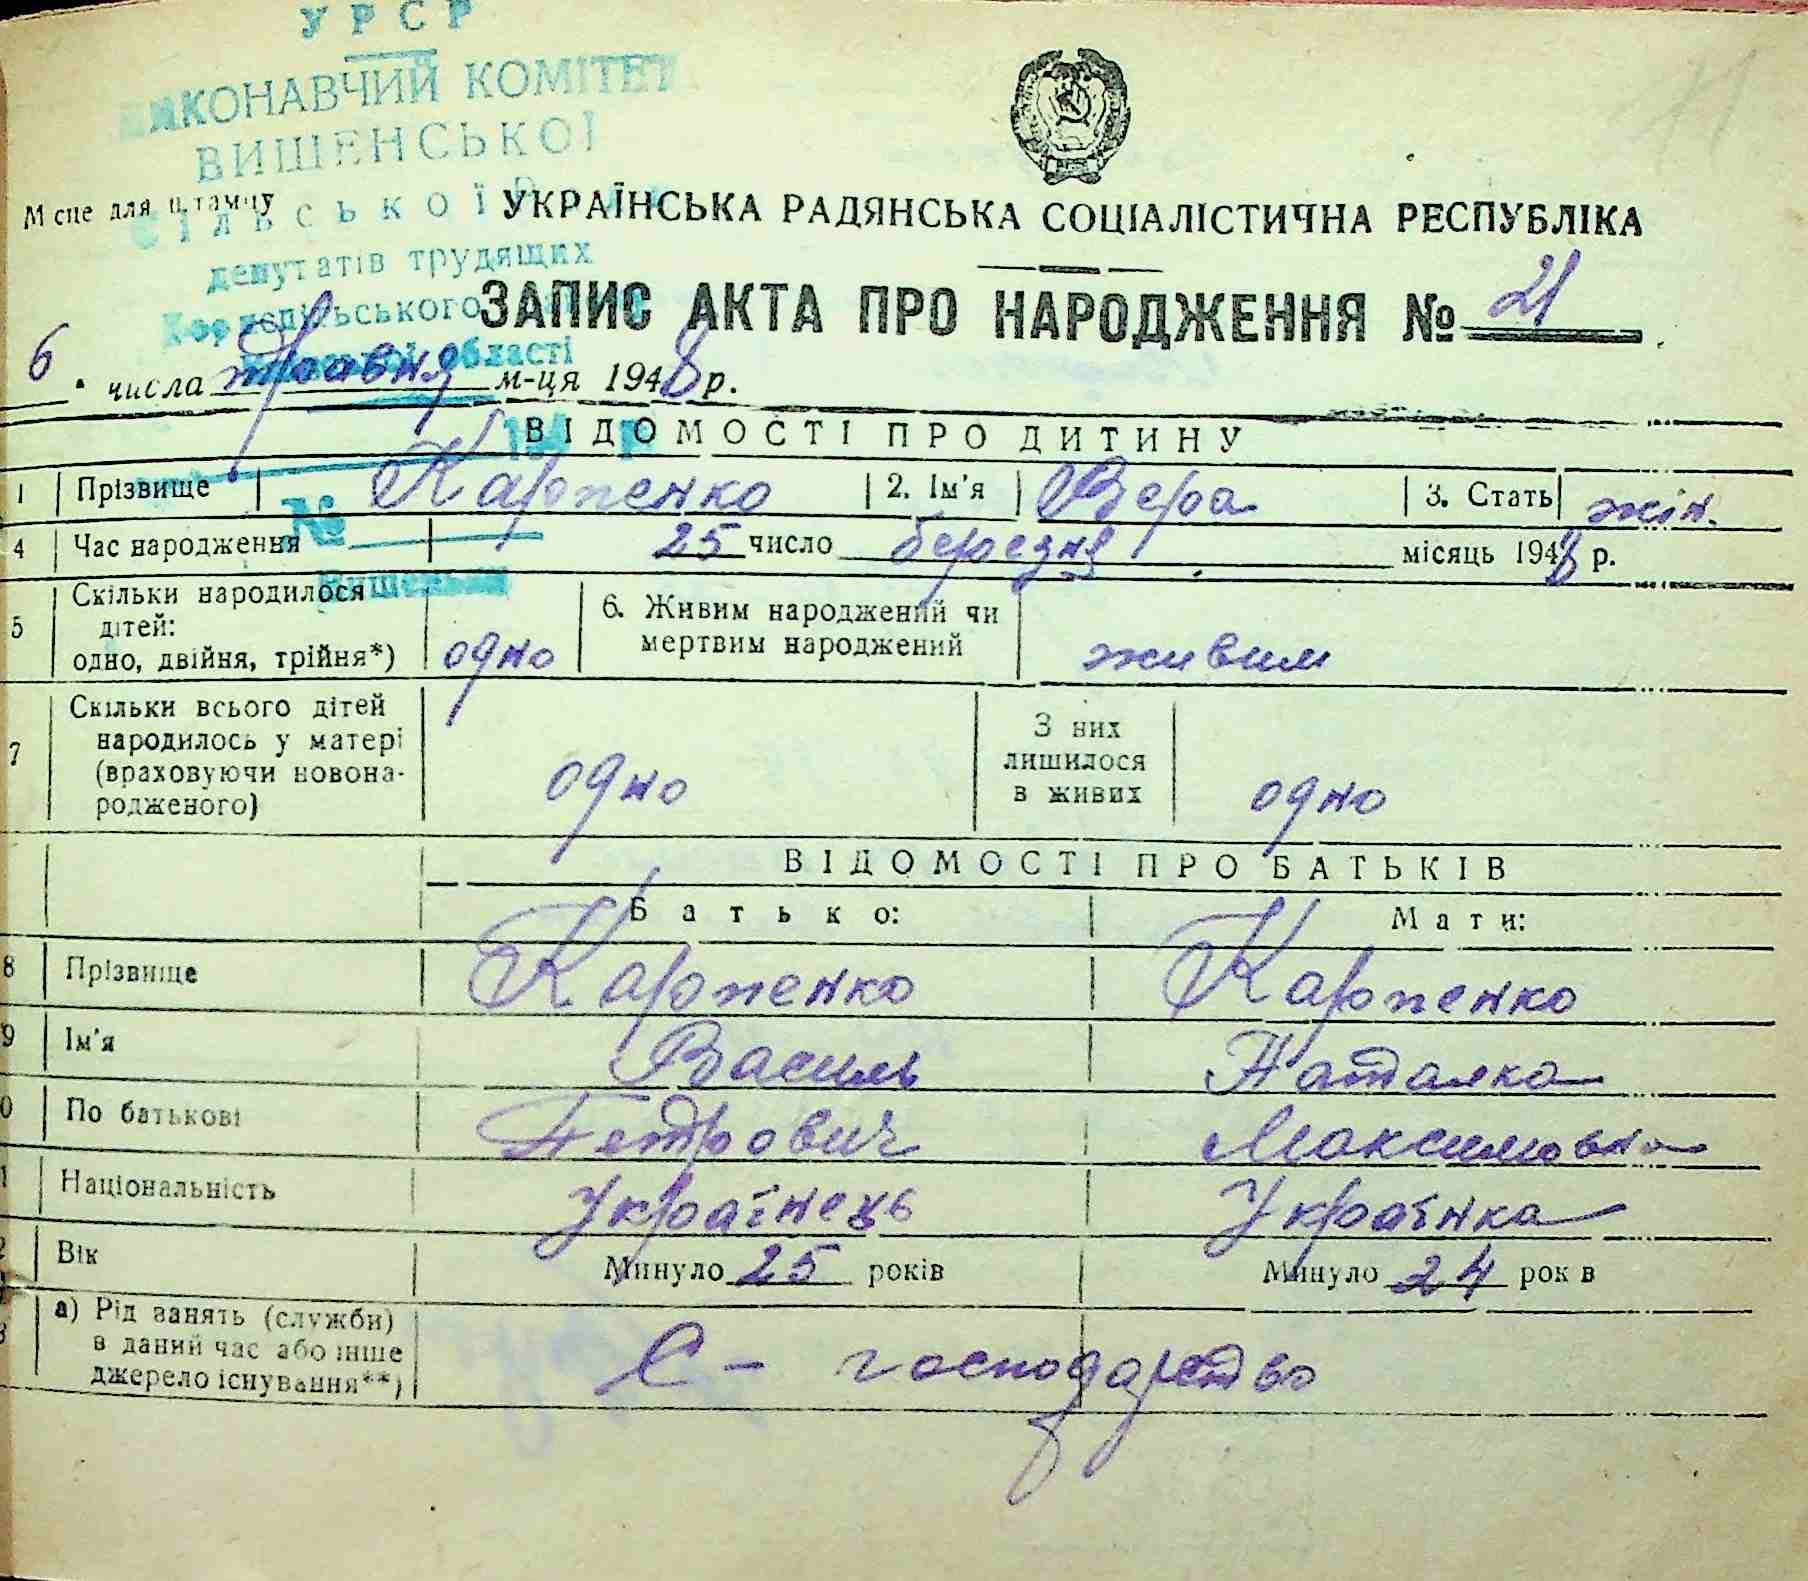 УРСР
ВИКОНАВЧИЙ КОМІТЕТ
ВИШЕНСЬКОЇ
СІЛЬСЬКОЇ
депутатів трудящих
області
194 р.
№
Місце для штампу
УКРАЇНСЬКА РАДЯНСЬКА СОЦІАЛІСТИЧНА РЕСПУБЛІКА
ЗАПИС АКТА ПРО НАРОДЖЕННЯ № 21
6 числа травня м-ця 1948 р.
ВІДОМОСТІ ПРО ДИТИНУ
1 Прізвище Карпенко 2. Ім'я Вера 3. Стать жін.
4 Час народження 25 число березня місяць 1948 р.
5 Скільки народилося дітей: одно, двійня, трійня*) одно 6. Живим народжений чи мертвим народжений живим
7 Скільки всього дітей народилось у матері (враховуючи новона-родженого) одно З них лишилося в живих одно
ВІДОМОСТІ ПРО БАТЬКІВ
Батько: Мати:
8 Прізвище Карпенко Карпенко
9 Ім'я Василь Наталка
0 По батькові Петрович Максимовна
1 Національність Українець Українка
2 Вік Минуло 25 років Минуло 24 рок в
3 а) Рід занять (служби) в даний час або інше джерело існування**) С - господарство